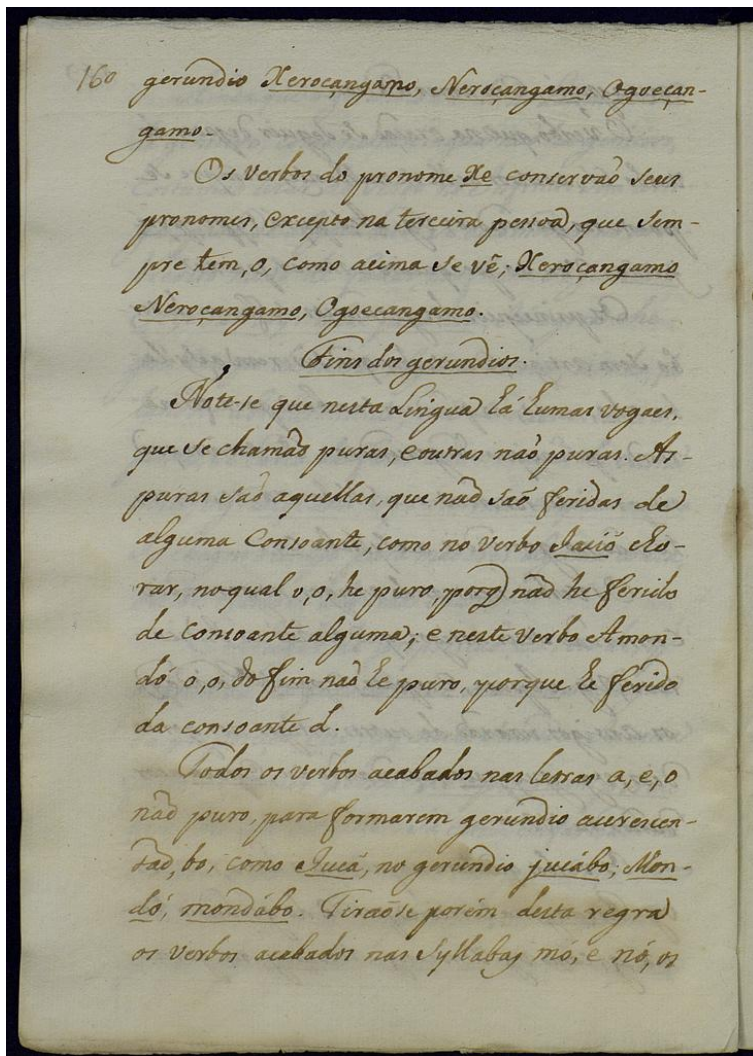 160 gerundio Xeroçangamo, Neroçangamo, Ogoeçan-
gamo.
Os verbos do pronome Xe conservaõ seus
pronomes, excepto na terceira pessoa, que sem-
pre tem, o, como acima se vê; Xeroçangamo
Neroçangamo, Ogoecangamo.
Fins dos gerundios.
Note-se que nesta Lingua há humas vogaes,
que se chamaõ puras, e outras naõ puras. As
puras saõ aquellas, que naõ saõ feridas de
alguma Consoante, como no verbo Jaciò cho-
rar, no qual o, o, he puro, porq̃ naõ he ferido
de consoante alguma; e neste verbo Amon-
dó o, o, do fim naõ he puro, porque he ferido
da consoante d.
Todos os verbos acabados nas letras a, e, o
naõ puro, para formarem gerundio acrescen-
taõ, bo, como Jucá, no gerundio jucábo; Mon-
dó, mondábo. Tiraõse porém desta regra
os verbos acabados nas Syllabas mó, e nó, os